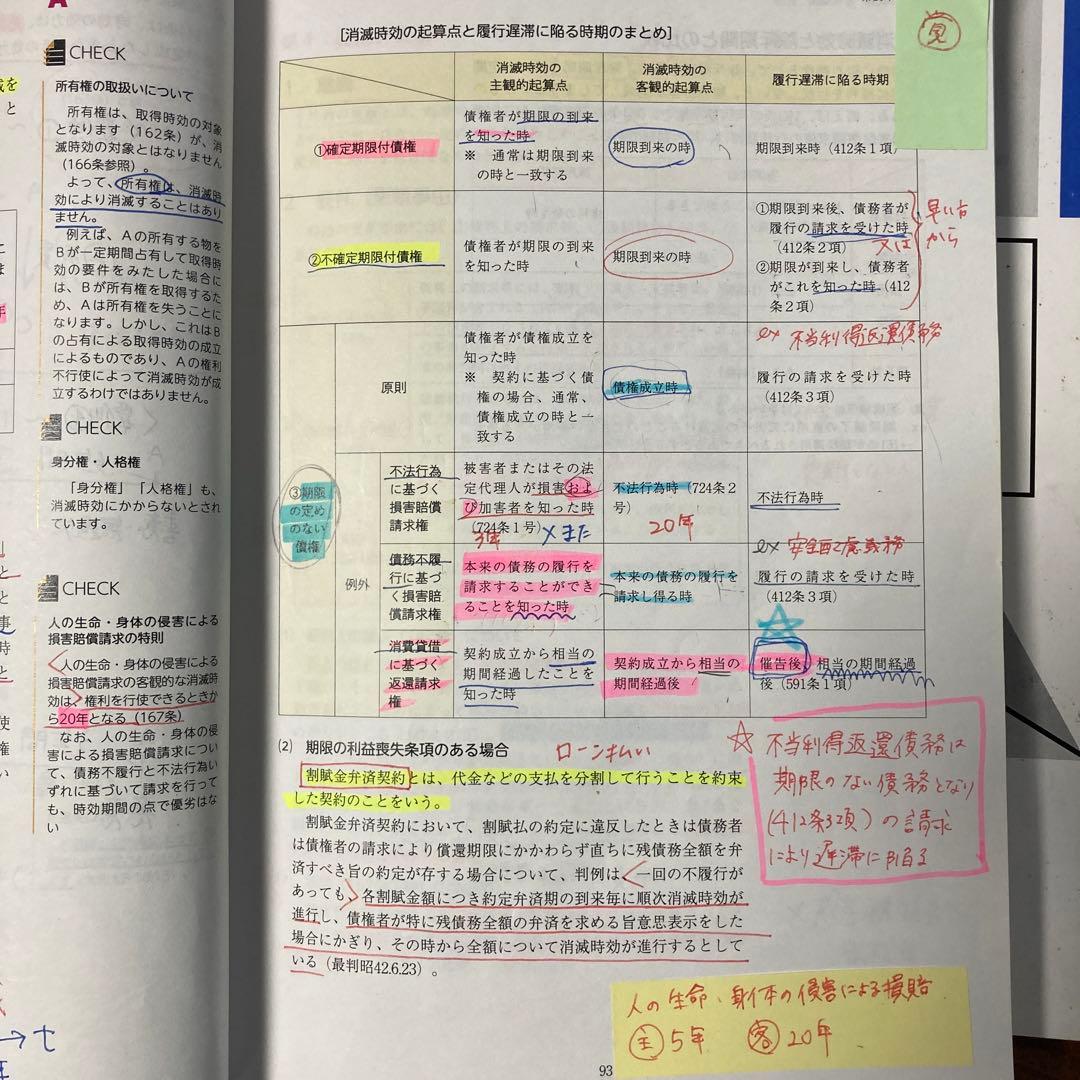 CHECK
所有権の取扱いについて
所有権は、取得時効の対象
となります（162条）が、消
滅時効の対象とはなりません
（166条参照）。
よって、所有権は、消滅時
効により消滅することはあり
ません。
例えば、Aの所有する物を
Bが一定期間占有して取得時
効の要件をみたした場合に
は、Bが所有権を取得するた
め、Aは所有権を失うことに
なります。しかし、これはB
の占有による取得時効の成立
によるものであり、Aの権利
不行使によって消滅時効が成
立するわけではありません。
CHECK
身分権・人格権
「身分権」「人格権」も、
消滅時効にかからないとされ
ています。
CHECK
人の生命・身体の侵害による
損害賠償請求の特則
人の生命・身体の侵害による
損害賠償請求の客観的な消滅時
効は、権利を行使できるときか
ら20年となる（167条）
なお、人の生命・身体の侵
害による損害賠償請求につい
て、債務不履行と不法行為い
ずれに基づいて請求を行って
も、時効期間の点で優劣はな
い
［消滅時効の起算点と履行遅滞に陥る時期のまとめ］
消滅時効の
主観的起算点
消滅時効の
客観的起算点
履行遅滞に陥る時期
①確定期限付債権
債権者が期限の到来
を知った時
※ 通常は期限到来
の時と一致する
期限到来の時
期限到来時（412条1項）
②不確定期限付債権
債権者が期限の到来
を知った時
期限到来の時
①期限到来後、債務者が
履行の請求を受けた時
（412条2項）
又は
②期限が到来し、債務者
がこれを知った時（412
条2項）
早い方
から
③期限
の定め
のない
債権
原則
債権者が債権成立を
知った時
※ 契約に基づく債
権の場合、通常、
債権成立の時と一
致する
債権成立時
ex 不当利得返還債務
履行の請求を受けた時
（412条3項）
例外
不法行為
に基づく
損害賠償
請求権
被害者またはその法
定代理人が損害およ
び加害者を知った時
（724条1号）
3年
×また
不法行為時（724条2
号）
20年
不法行為時
債務不履
行に基づ
く損害賠
償請求権
本来の債務の履行を
請求することができ
ることを知った時
本来の債務の履行を
請求し得る時
ex 安全配慮義務
履行の請求を受けた時
（412条3項）
消費貸借
に基づく
返還請求
権
契約成立から相当の
期間経過したことを
知った時
契約成立から相当の
期間経過後
催告後、相当の期間経過
後（591条1項）
(2) 期限の利益喪失条項のある場合
ローン払い
割賦金弁済契約とは、代金などの支払を分割して行うことを約束
した契約のことをいう。
割賦金弁済契約において、割賦払の約定に違反したときは債務者
は債権者の請求により償還期限にかかわらず直ちに残債務全額を弁
済すべき旨の約定が存する場合について、判例は、一回の不履行が
あっても、各割賦金額につき約定弁済期の到来毎に順次消滅時効が
進行し、債権者が特に残債務全額の弁済を求める旨意思表示をした
場合にかぎり、その時から全額について消滅時効が進行するとして
いる（最判昭42.6.23）。
☆ 不当利得返還債務は
期限のない債務となり
(412条3項) の請求
により遅滞に陥る
人の生命、身体の侵害による損賠
主 5年 客 20年
93